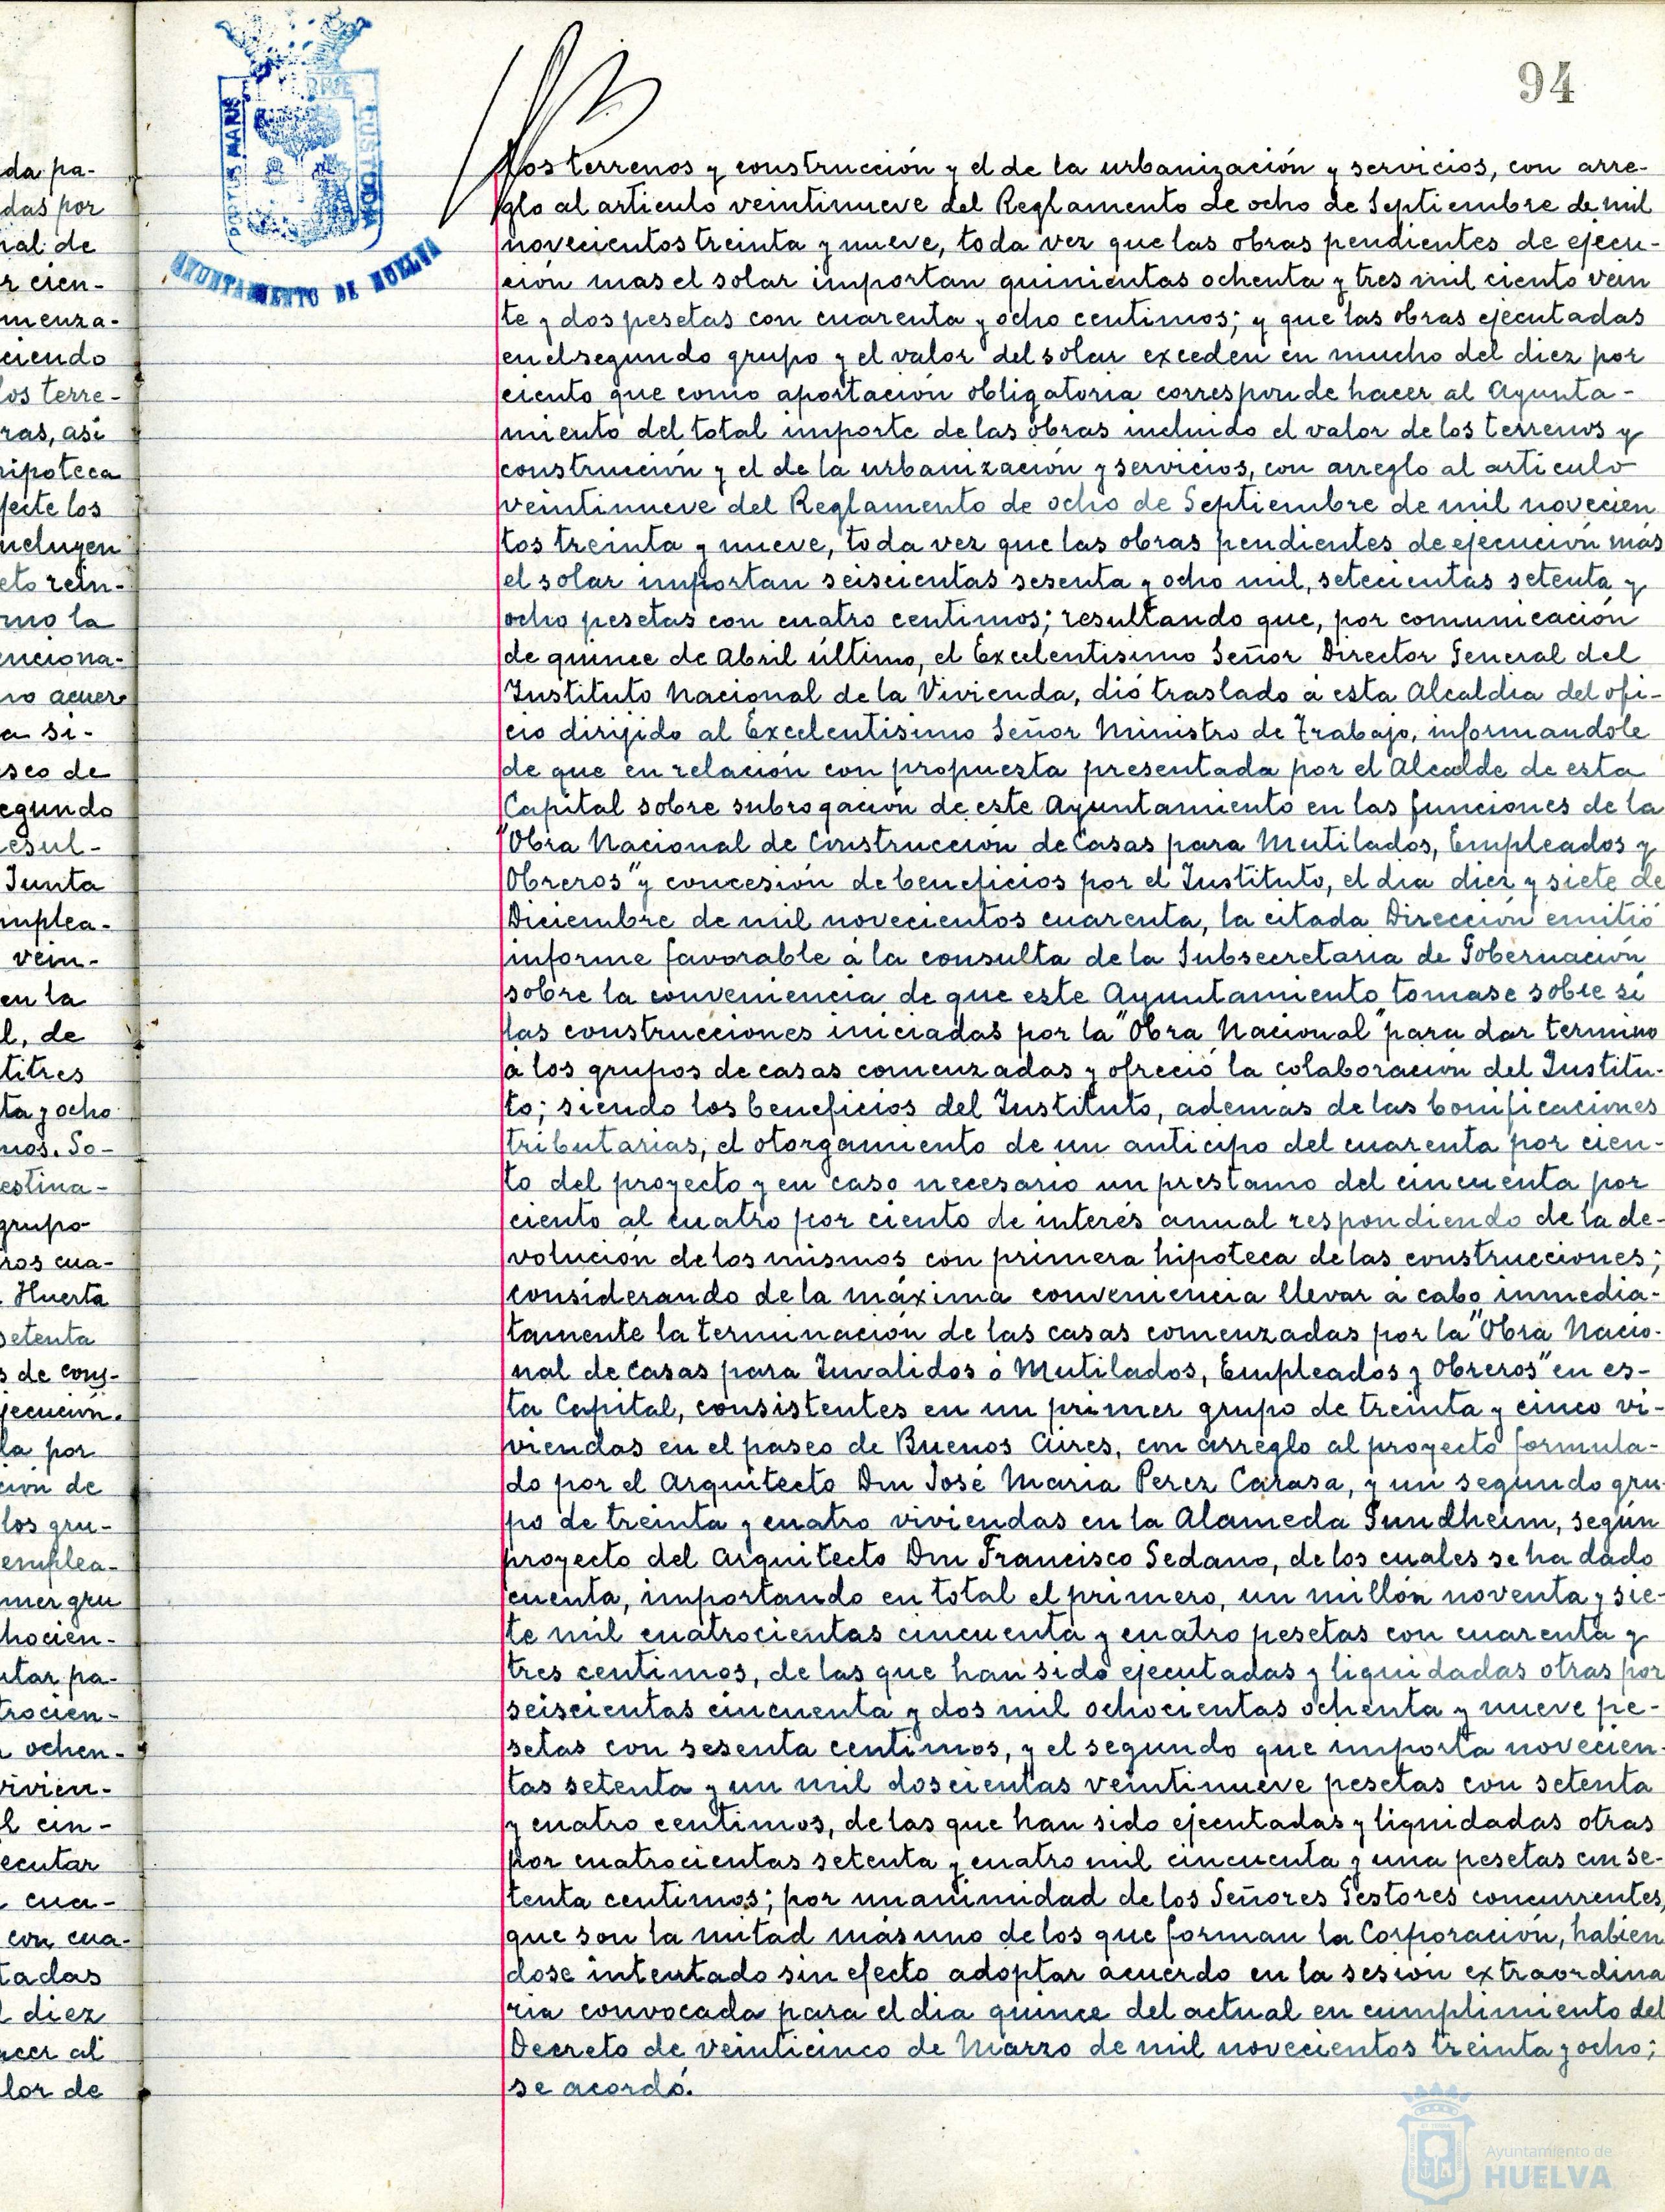 94
PORTUS MARIS
CUSTODIA
AYUNTAMIENTO DE HUELVA
da pa-
das por
nal de
r cien-
menza-
ciendo
los terre-
ras, asi
hipoteca
fecte los
ncluyen
eto rein-
mo la
enciona-
no acuer
a si-
seo de
egundo
esul-
Junta
mplea-
vein-
en la
l, de
titres
ta y ocho
mos. So-
estina-
grupo
ros cua-
Huerta
setenta
s de cons-
jecución.
la por
cion de
los gru-
emplea-
mer gru
hocien-
utar pa-
trocien-
ochen-
vivien-
l cin-
ecutar
cua-
con cua-
tadas
l diez
acer al
lor de
los terrenos y construcción y el de la urbanización y servicios, con arre-
glo al articulo veintinueve del Reglamento de ocho de Septiembre de mil
novecientos treinta y nueve, toda vez que las obras pendientes de ejecu-
ción mas el solar importan quinientas ochenta y tres mil ciento vein
te y dos pesetas con cuarenta y ocho centimos; y que las obras ejecutadas
en el segundo grupo y el valor del solar exceden en mucho del diez por
ciento que como aportación obligatoria corresponde hacer al Ayunta-
miento del total importe de las obras incluido el valor de los terrenos y
construcción y el de la urbanización y servicios, con arreglo al articulo
veintinueve del Reglamento de ocho de Septiembre de mil novecien
tos treinta y nueve, toda vez que las obras pendientes de ejecución más
el solar importan seiscientas sesenta y ocho mil, setecientas setenta y
ocho pesetas con cuatro centimos; resultando que, por comunicación
de quince de Abril último, el Excelentisimo Señor Director General del
Instituto Nacional de la Vivienda, dió traslado á esta Alcaldia del ofi-
cio dirijido al Excelentisimo Señor Ministro de Trabajo, informandole
de que en relación con propuesta presentada por el Alcalde de esta
Capital sobre subrogación de este Ayuntamiento en las funciones de la
"Obra Nacional de Construcción de Casas para Mutilados, Empleados y
Obreros" y concesión de beneficios por el Instituto, el dia diez y siete de
Diciembre de mil novecientos cuarenta, la citada Dirección emitió
informe favorable á la consulta de la Subsecretaria de Gobernación
sobre la conveniencia de que este Ayuntamiento tomase sobre si
las construcciones iniciadas por la "Obra Nacional" para dar termino
á los grupos de casas comenzadas y ofreció la colaboración del Institu-
to; siendo los beneficios del Instituto, ademas de las bonificaciones
tributarias, el otorgamiento de un anticipo del cuarenta por cien-
to del proyecto y en caso necesario un prestamo del cincuenta por
ciento al cuatro por ciento de interés anual respondiendo de la de-
volución de los mismos con primera hipoteca de las construcciones;
considerando de la máxima conveniencia llevar á cabo inmedia-
tamente la terminación de las casas comenzadas por la "Obra Nacio-
nal de Casas para Invalidos ó Mutilados, Empleados y Obreros" en es-
ta Capital, consistentes en un primer grupo de treinta y cinco vi-
viendas en el paseo de Buenos Aires, con arreglo al proyecto formula-
do por el Arquitecto Don José Maria Perez Carasa, y un segundo gru
po de treinta y cuatro viviendas en la Alameda Sundheim, según
proyecto del Arquitecto Don Francisco Sedano, de los cuales se ha dado
cuenta, importando en total el primero, un millón noventa y sie-
te mil cuatrocientas cincuenta y cuatro pesetas con cuarenta y
tres centimos, de las que han sido ejecutadas y liquidadas otras por
seiscientas cincuenta y dos mil ochocientas ochenta y nueve pe-
setas con sesenta centimos, y el segundo que importa novecien-
tas setenta y un mil doscientas veintinueve pesetas con setenta
y cuatro centimos, de las que han sido ejecutadas y liquidadas otras
por cuatrocientas setenta y cuatro mil cincuenta y una pesetas con se-
tenta centimos; por unanimidad de los Señores Gestores concurrentes,
que son la mitad más uno de los que forman la Corporación, habien
dose intentado sin efecto adoptar acuerdo en la sesión extraordina
ria convocada para el dia quince del actual en cumplimiento del
Decreto de veinticinco de Marzo de mil novecientos treinta y ocho;
se acordó.
Ayuntamiento de
HUELVA